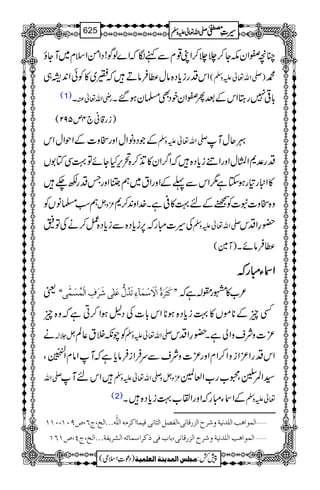 سیرتِ مصطفیٰ صلی اللہ تعالیٰ علیہ وسلم 625
چنانچہ صفوان مکہ جا کر چلا چلا کر اپنی قوم سے کہنے لگا کہ اے لوگو! دامن اسلام میں آ جاؤ
محمد (صلی اللہ تعالیٰ علیہ وسلم) اس قدر زیادہ مال عطا فرماتے ہیں کہ فقیری کا کوئی اندیشہ ہی
باقی نہیں رہتا اس کے بعد پھر صفوان خود بھی مسلمان ہو گئے۔ رضی اللہ تعالیٰ عنہ۔ (1)
(زرقانی ج۴ ص۲۹۵)
بہر حال آپ صلی اللہ تعالیٰ علیہ وسلم کے جود و نوال اور سخاوت کے احوال اس
قدر عدیم المثال اور اتنے زیادہ ہیں کہ اگر ان کا تذکرہ تحریر کیا جائے تو بہت سی کتابوں
کا انبار تیار ہو سکتا ہے مگر اس سے پہلے کے اوراق میں ہم جتنا اور جس قدر لکھ چکے ہیں
وہ سخاوتِ نبوت کو سمجھنے کے لئے بہت کافی ہے۔ خداوند کریم عزوجل ہم سب مسلمانوں کو
حضور اقدس صلی اللہ تعالیٰ علیہ وسلم کی سیرت مبارکہ پر زیادہ سے زیادہ عمل کرنے کی توفیق
عطا فرمائے۔ (آمین)
اسماء مبارکہ
عرب کا مشہور مقولہ ہے کہ "کَثْرَۃُ الْاَسْمَآءِ تَدُلُّ عَلٰی شَرَفِ الْمُسَمّٰی" یعنی
کسی چیز کے ناموں کا بہت زیادہ ہونا اس بات کی دلیل ہوا کرتی ہے کہ وہ چیز
عزت و شرف والی ہے۔ حضور اقدس صلی اللہ تعالیٰ علیہ وسلم کو چونکہ خلاق عالم جل جلالہ نے
اس قدر اعزاز و اکرام اور عزت و شرف سے سرفراز فرمایا ہے کہ آپ امام النبیین،
سید المرسلین، محبوب رب العالمین عزوجل و صلی اللہ تعالیٰ علیہ وسلم ہیں اس لئے آپ صلی اللہ
تعالیٰ علیہ وسلم کے اسماء مبارکہ اور القاب بہت زیادہ ہیں۔ (2)
1 ......المواھب اللدنیۃ و شرح الزرقانی، الفصل الثانی فیما اکرمہ اللّٰہ...الخ، ج۶، ص۱۰۹۔۱۱۰
2 ......المواھب اللدنیۃ و شرح الزرقانی، باب فی ذکر اسمائہ الشریفۃ...الخ، ج۴، ص۱۶۱
پیش کش: مجلس المدینۃ العلمیۃ (دعوتِ اسلامی)